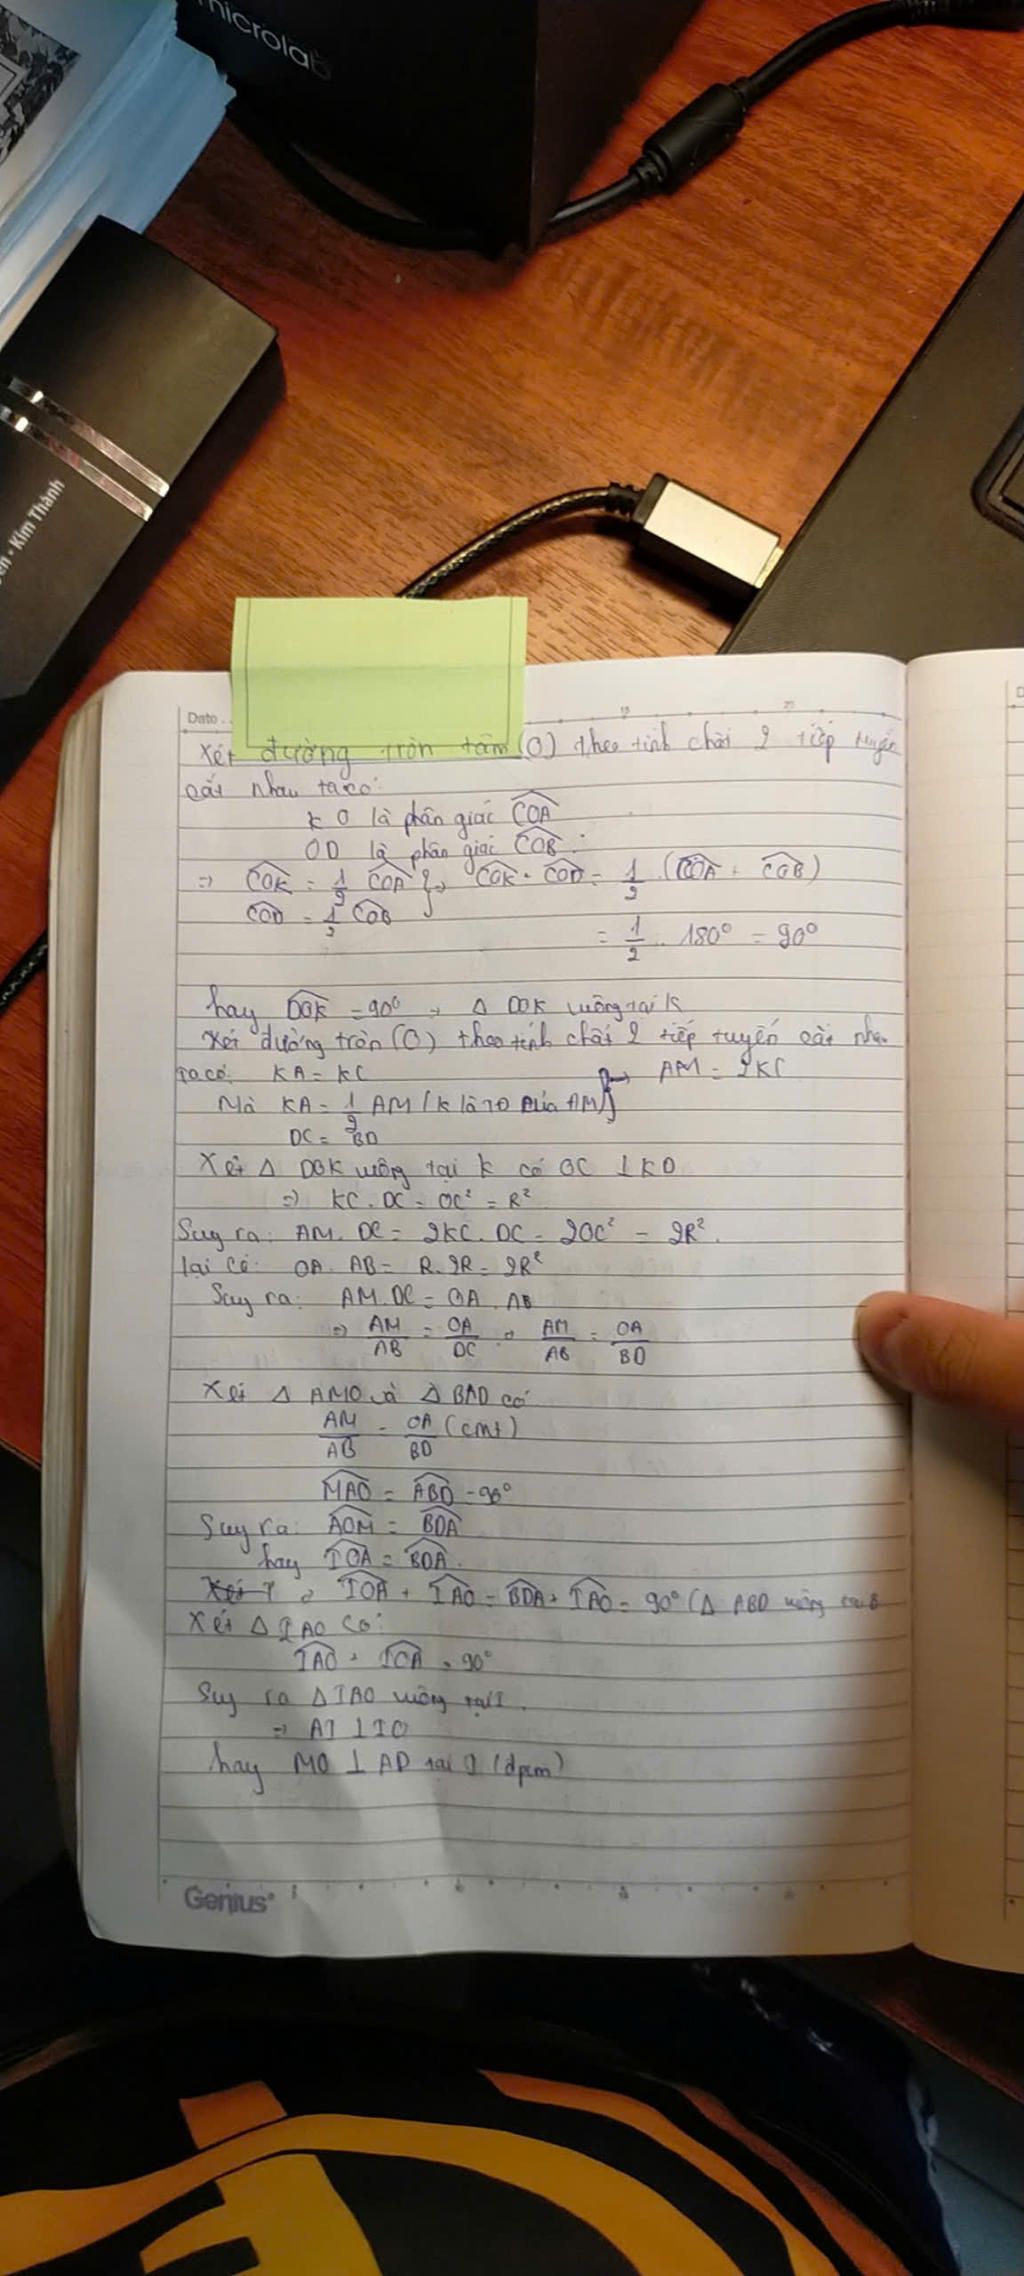 microlab
Kim Thành
Date
15
20
Xét đường tròn tâm (O) theo tính chất 2 tiếp tuyến
cắt nhau ta có:
KO là phân giác COA
OD là phân giác COB
=> COK = 1/2 COA } => COK + COD = 1/2 . (COA + COB)
COD = 1/2 COB
= 1/2 . 180° = 90°
hay DOK = 90° → Δ DOK vuông tại K
Xét đường tròn (O) theo tính chất 2 tiếp tuyến cắt nhau
ta có: KA = KC
Mà KA = 1/2 AM (K là TĐ của AM) } → AM = 2KC
DC = BD
Xét Δ DOK vuông tại K có OC ⊥ KD
=> KC . DC = OC² = R²
Suy ra: AM . DC = 2KC . DC = 2OC² = 2R².
lại có: OA . AB = R . 2R = 2R²
Suy ra: AM . DC = OA . AB
=> AM/AB = OA/DC => AM/AB = OA/BD
Xét Δ AMO và Δ BAD có
AM/AB = OA/BD (cmt)
MAO = ABD = 90°
Suy ra: AOM = BDA
hay IOA = BDA.
IOA + IAO = BDA + IAO = 90° (Δ ABD vuông tại B
Xét Δ IAO có:
IAO + IOA = 90°
Suy ra Δ IAO vuông tại I.
=> AI ⊥ IO
hay MO ⊥ AD tại I (đpcm)
Genius